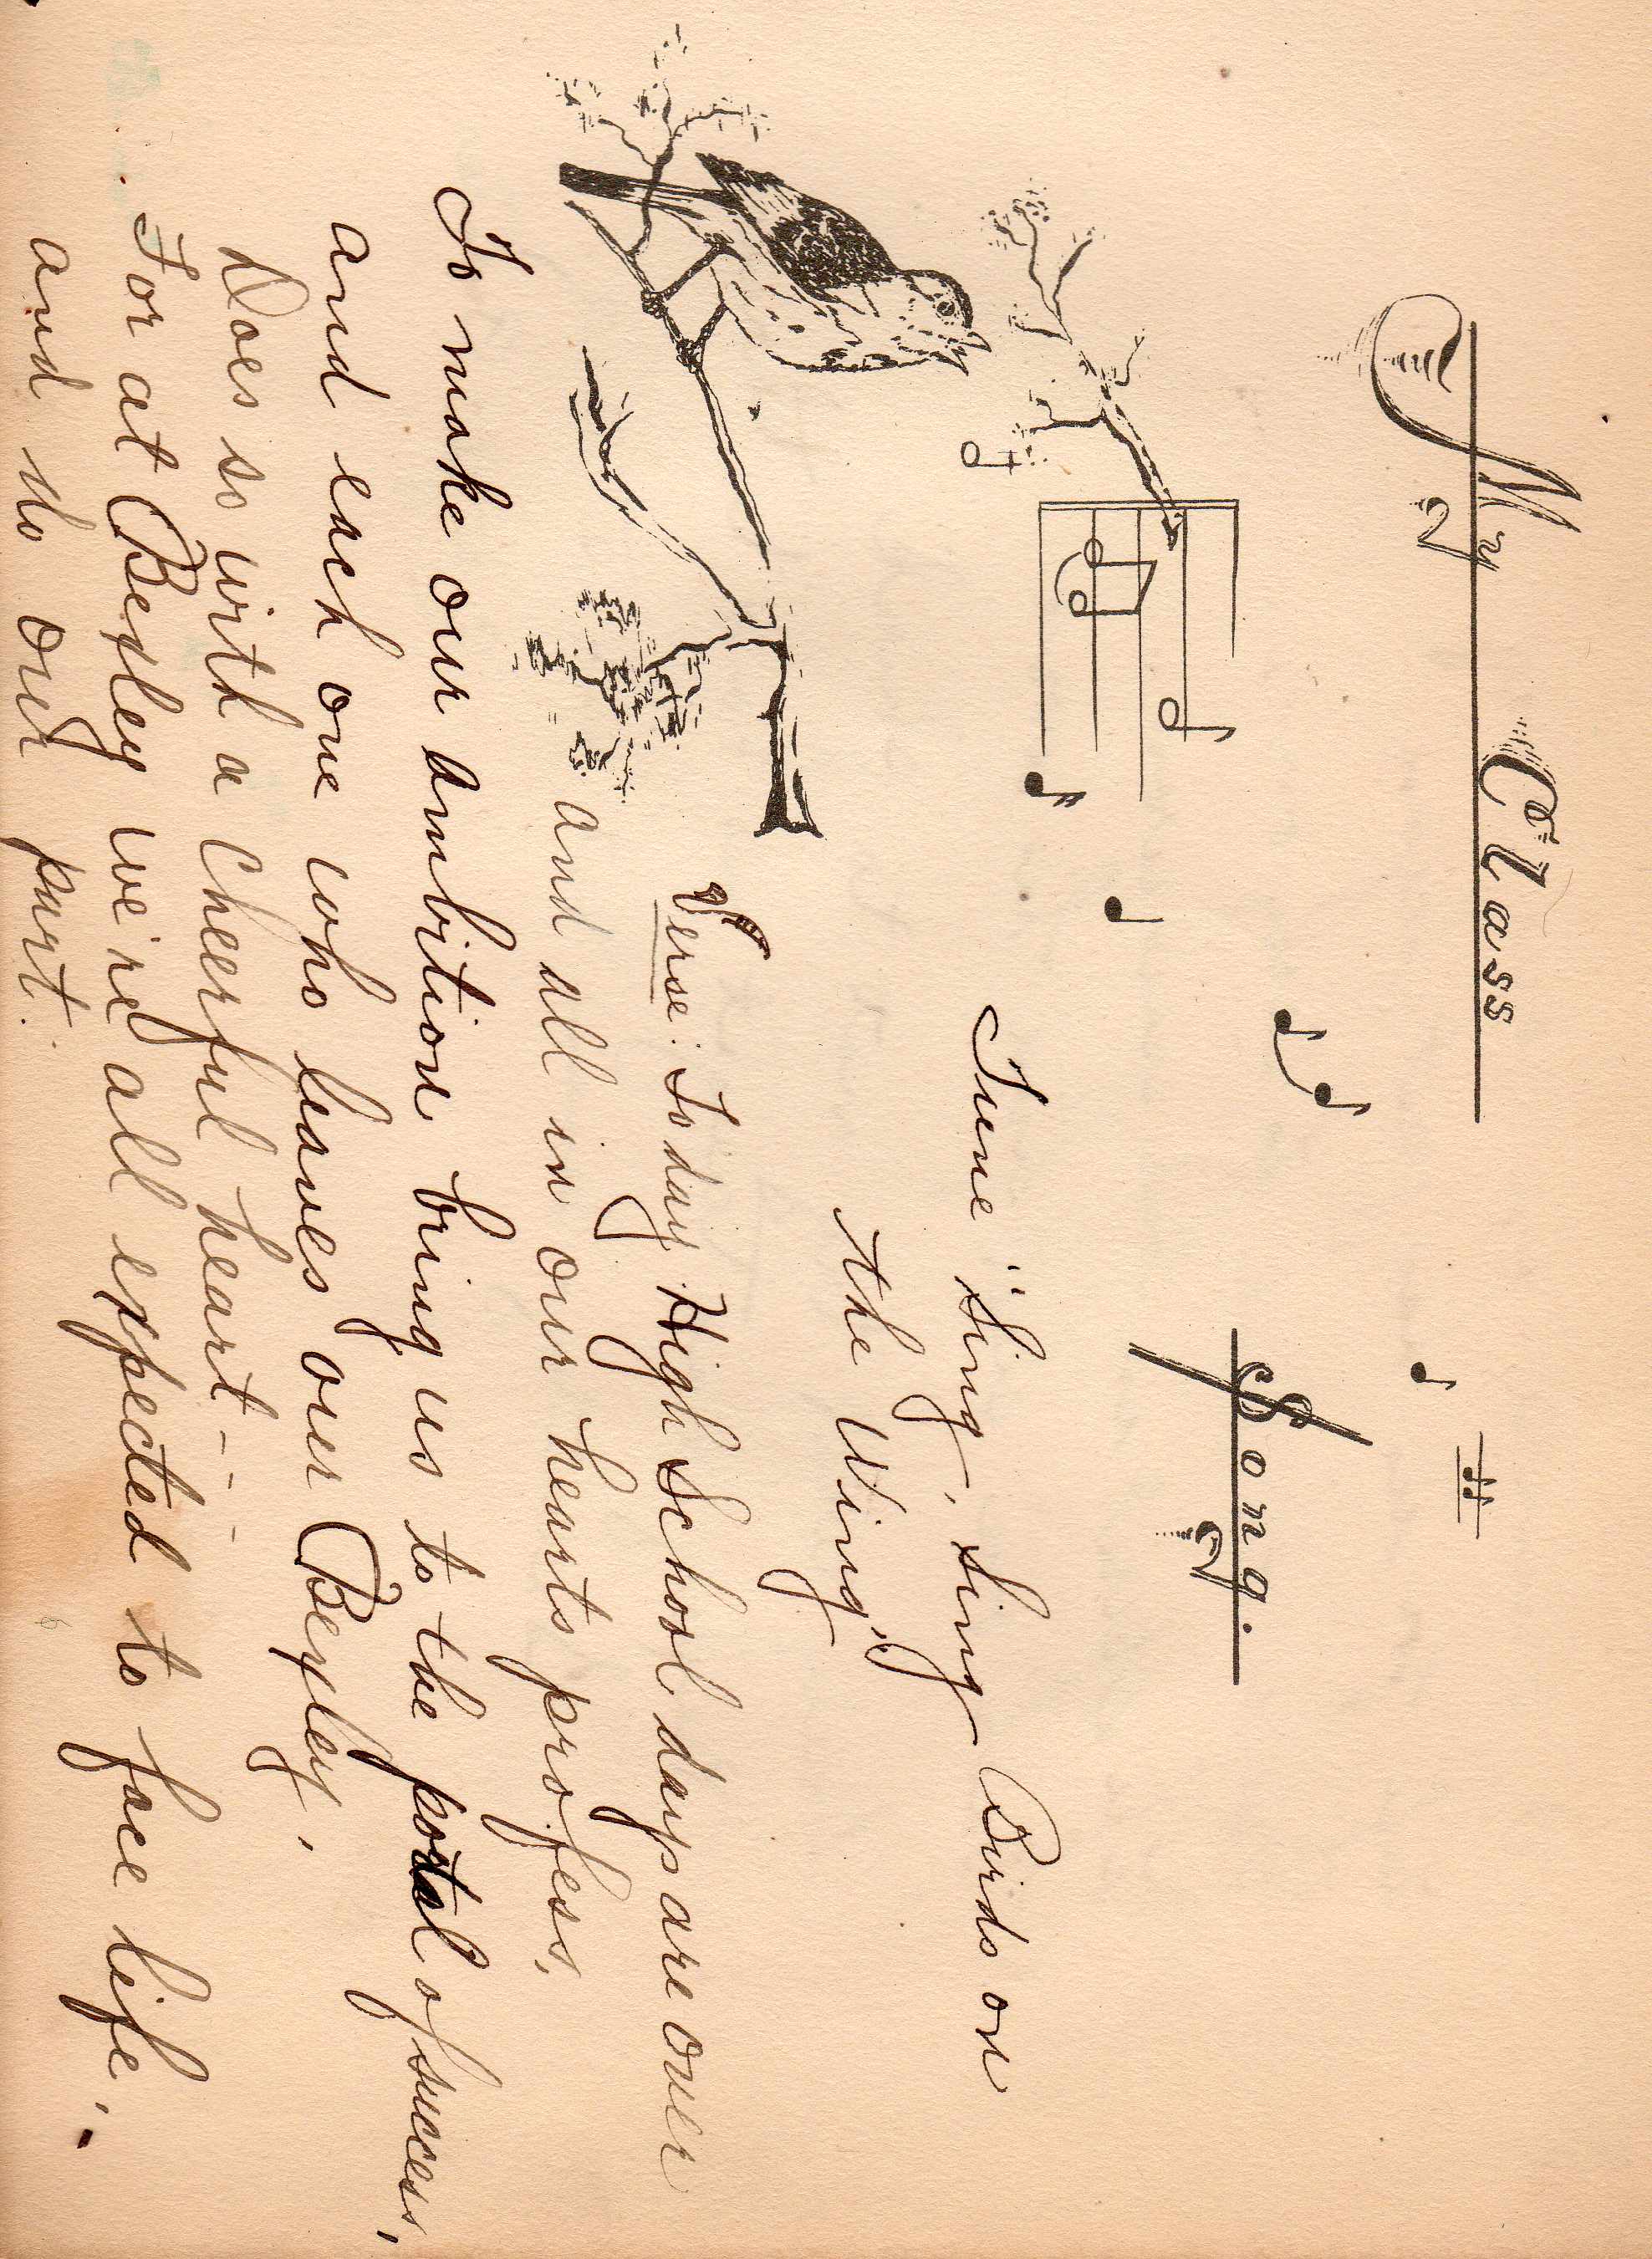 My Class
Song.
Tune "Sing, Sing Birds on
the Wing"
Verse: To day High School days are over
and all in our hearts profess,
To make our ambition bring us to the portal of success,
and each one who leaves our Bexley,
Does so with a cheerful heart - - -
For at Bexley we're all expected to face life,
and do our part.